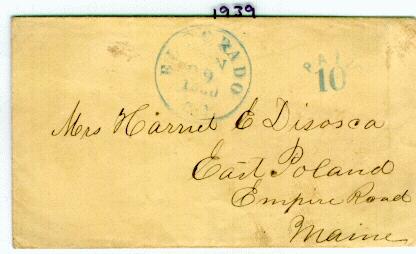 1939
EL DORADO
9
PAID
10
Mrs Harriet E Disosca
East Poland
Empire Road
Maine